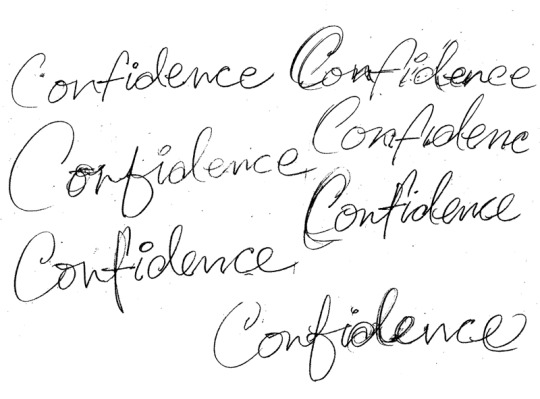 Confidence Confidence
Confidenc
Confidence
Confidence
Confidence
Confidence